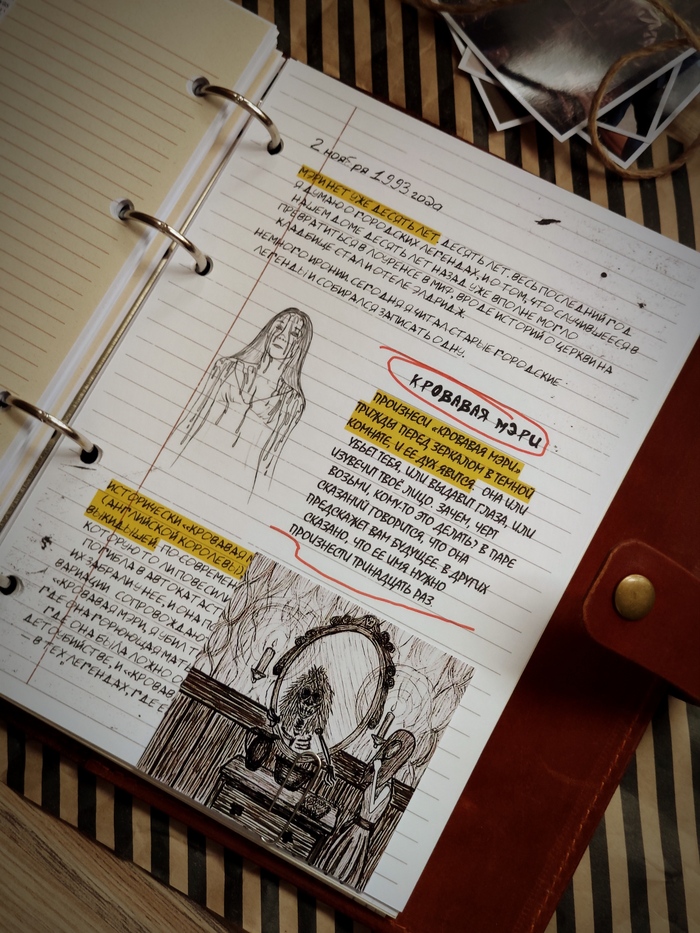 2 ноября 1993 года
МЭРИ НЕТ УЖЕ ДЕСЯТЬ ЛЕТ. ДЕСЯТЬ ЛЕТ. ВЕСЬ ПОСЛЕДНИЙ ГОД
Я ДУМАЮ О ГОРОДСКИХ ЛЕГЕНДАХ, И О ТОМ, ЧТО СЛУЧИВШЕЕСЯ В
НАШЕМ ДОМЕ ДЕСЯТЬ ЛЕТ НАЗАД УЖЕ ВПОЛНЕ МОГЛО
ПРЕВРАТИТЬСЯ В ЛОУРЕНСЕ В МИФ, ВРОДЕ ИСТОРИЙ О ЦЕРКВИ НА
КЛАДБИЩЕ СТАЛ И ОТЕЛЕ ЭЛДРИДЖ.
НЕМНОГО ИРОНИИ. СЕГОДНЯ Я ЧИТАЛ СТАРЫЕ ГОРОДСКИЕ
ЛЕГЕНДЫ И СОБИРАЛСЯ ЗАПИСАТЬ ОДНУ.
КРОВАВАЯ МЭРИ
ПРОИЗНЕСИ «КРОВАВАЯ МЭРИ»
ТРИЖДЫ ПЕРЕД ЗЕРКАЛОМ В ТЕМНОЙ
КОМНАТЕ, И ЕЕ ДУХ ЯВИТСЯ. ОНА ИЛИ
УБЬЕТ ТЕБЯ, ИЛИ ВЫДАВИТ ГЛАЗА, ИЛИ
ИЗУВЕЧИТ ТВОЁ ЛИЦО. ЗАЧЕМ, ЧЕРТ
ВОЗЬМИ, КОМУ-ТО ЭТО ДЕЛАТЬ? В ПАРЕ
СКАЗАНИЙ ГОВОРИТСЯ, ЧТО ОНА
ПРЕДСКАЖЕТ ВАМ БУДУЩЕЕ. В ДРУГИХ
СКАЗАНО, ЧТО ЕЕ ИМЯ НУЖНО
ПРОИЗНЕСТИ ТРИНАДЦАТЬ РАЗ.
ИСТОРИЧЕСКИ «КРОВАВАЯ
(АНГЛИЙСКОЙ КОРОЛЕВЫ)
ВЫКИДЫШЕЙ. ПО СОВРЕМЕН
КОТОРУЮ ТО ЛИ ПОВЕСИЛИ
ИХ ЗАБРАЛИ У НЕЕ, И ОНА ПО
ПОГИБЛА В АВТОКАТАСТ
ВАРИАЦИИ СОПРОВОЖДАЮТ
«КРОВАВАЯ МЭРИ, Я УБИЛ Т
ГДЕ ОНА ГОРЮЮЩАЯ МАТЬ
ГДЕ ОНА БЫЛА ЛОЖНО О
ДЕТОУБИЙСТВЕ, И «КРОВАВ
– В ТЕХ ЛЕГЕНДАХ, ГДЕ Е